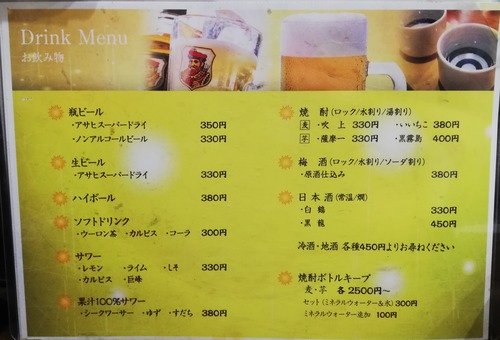 Drink Menu
お飲み物
瓶ビール
・アサヒスーパードライ 350円
・ノンアルコールビール 330円
生ビール
・アサヒスーパードライ 330円
ハイボール 380円
ソフトドリンク
・ウーロン茶 ・カルピス ・コーラ 300円
サワー
・レモン ・ライム ・しそ 330円
・カルピス ・巨峰
果汁100%サワー
・シークワーサー ・ゆず ・すだち 380円
焼 酎(ロック/水割り/湯割り)
麦 ・吹 上 330円 ・いいちこ 380円
芋 ・薩摩一 330円 ・黒霧島 400円
梅 酒(ロック/水割り/ソーダ割り)
・原酒仕込み 380円
日 本 酒(常温/燗)
・白 鶴 330円
・黒 龍 450円
冷酒・地酒 各種450円よりお尋ねください
焼酎ボトルキープ
麦・芋 各 2500円〜
セット(ミネラルウォーター&氷) 300円
ミネラルウォーター追加 100円